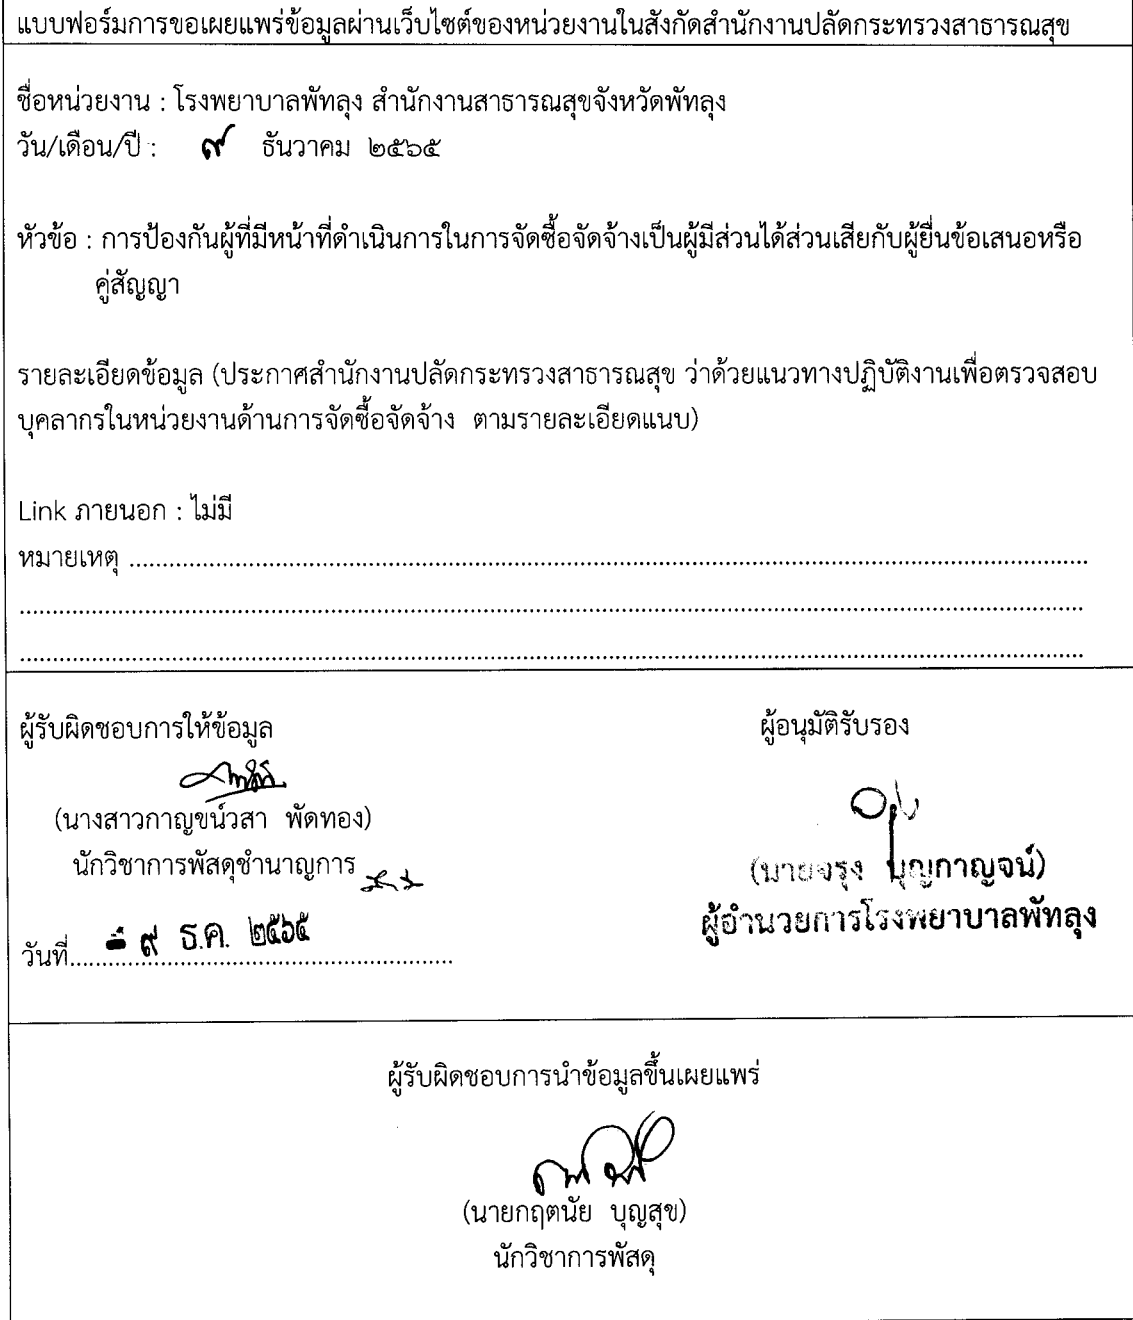 แบบฟอร์มการขอเผยแพร่ข้อมูลผ่านเว็บไซต์ของหน่วยงานในสังกัดสำนักงานปลัดกระทรวงสาธารณสุข
ชื่อหน่วยงาน : โรงพยาบาลพัทลุง สำนักงานสาธารณสุขจังหวัดพัทลุง
วัน/เดือน/ปี : ๙ ธันวาคม ๒๕๖๕
หัวข้อ : การป้องกันผู้ที่มีหน้าที่ดำเนินการในการจัดซื้อจัดจ้างเป็นผู้มีส่วนได้ส่วนเสียกับผู้ยื่นข้อเสนอหรือ
คู่สัญญา
รายละเอียดข้อมูล (ประกาศสำนักงานปลัดกระทรวงสาธารณสุข ว่าด้วยแนวทางปฏิบัติงานเพื่อตรวจสอบ
บุคลากรในหน่วยงานด้านการจัดซื้อจัดจ้าง ตามรายละเอียดแนบ)
Link ภายนอก : ไม่มี
หมายเหตุ ........................................................................................................
........................................................................................................
........................................................................................................
ผู้รับผิดชอบการให้ข้อมูล
(นางสาวกาญขน์วสา พัดทอง)
นักวิชาการพัสดุชำนาญการ
วันที่ ๙ ธ.ค. ๒๕๖๕
ผู้อนุมัติรับรอง
(นายจรุง บุญกาญจน์)
ผู้อำนวยการโรงพยาบาลพัทลุง
ผู้รับผิดชอบการนำข้อมูลขึ้นเผยแพร่
(นายกฤตนัย บุญสุข)
นักวิชาการพัสดุ